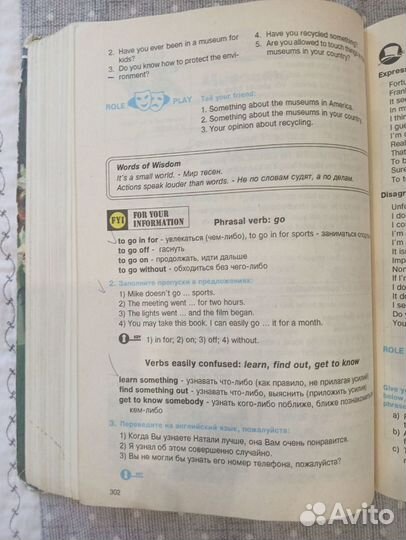 2. Have you ever been in a museum for
kids?
3. Do you know how to protect the envi-
ronment?
4. Have you recycled something?
5. Are you allowed to touch things in
museums in your country?
ROLE PLAY
Tell your friend:
1. Something about the museums in America.
2. Something about the museums in your country.
3. Your opinion about recycling.
Words of Wisdom
It's a small world. - Мир тесен.
Actions speak louder than words. - Не по словам судят, а по делам.
FYI FOR YOUR
INFORMATION
Phrasal verb: go
to go in for - увлекаться (чем-либо), to go in for sports - заниматься спортом
to go off - гаснуть
to go on - продолжать, идти дальше
to go without - обходиться без чего-либо
2. Заполните пропуски в предложениях:
1) Mike doesn't go ... sports.
2) The meeting went ... for two hours.
3) The lights went ... and the film began.
4) You may take this book. I can easily go ... it for a month.
KEY 1) in for; 2) on; 3) off; 4) without.
Verbs easily confused: learn, find out, get to know
learn something - узнавать что-либо (как правило, не прилагая усилий)
find something out - узнавать что-либо, выяснить (приложить усилия)
get to know somebody - узнать кого-либо поближе, ближе познакомиться
кем-либо
3. Переведите на английский язык, пожалуйста:
1) Когда Вы узнаете Натали лучше, она Вам очень понравится.
2) Я узнал об этом совершенно случайно.
3) Вы не могли бы узнать его номер телефона, пожалуйста?
KEY
302
Express
Fortu
Frank
It see
In m
I thi
I gue
I co
I'm
Real
That
To b
To
Disag
Unfo
I do
I'm
I'm
It is
Imp
Nor
I'm
If I
I do
I se
Do
ROLE
Give y
below,
a)
b)
c)
d)
Avito